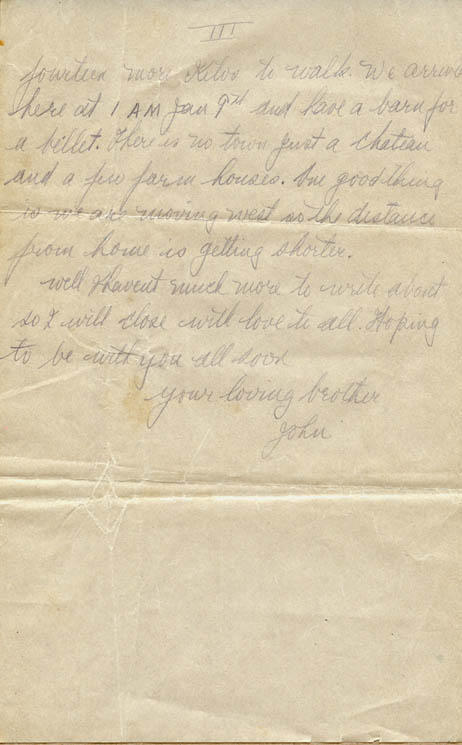 III
fourteen more Kilos to walk. We arrive
here at 1 AM Jan 9th and have a barn for
a billet. There is no town just a chateau
and a few farm houses. One good thing
is we are moving west so the distance
from home is getting shorter.
well I havent much more to write about
so I will close with love to all. Hoping
to be with you all soon
your loving brother
John